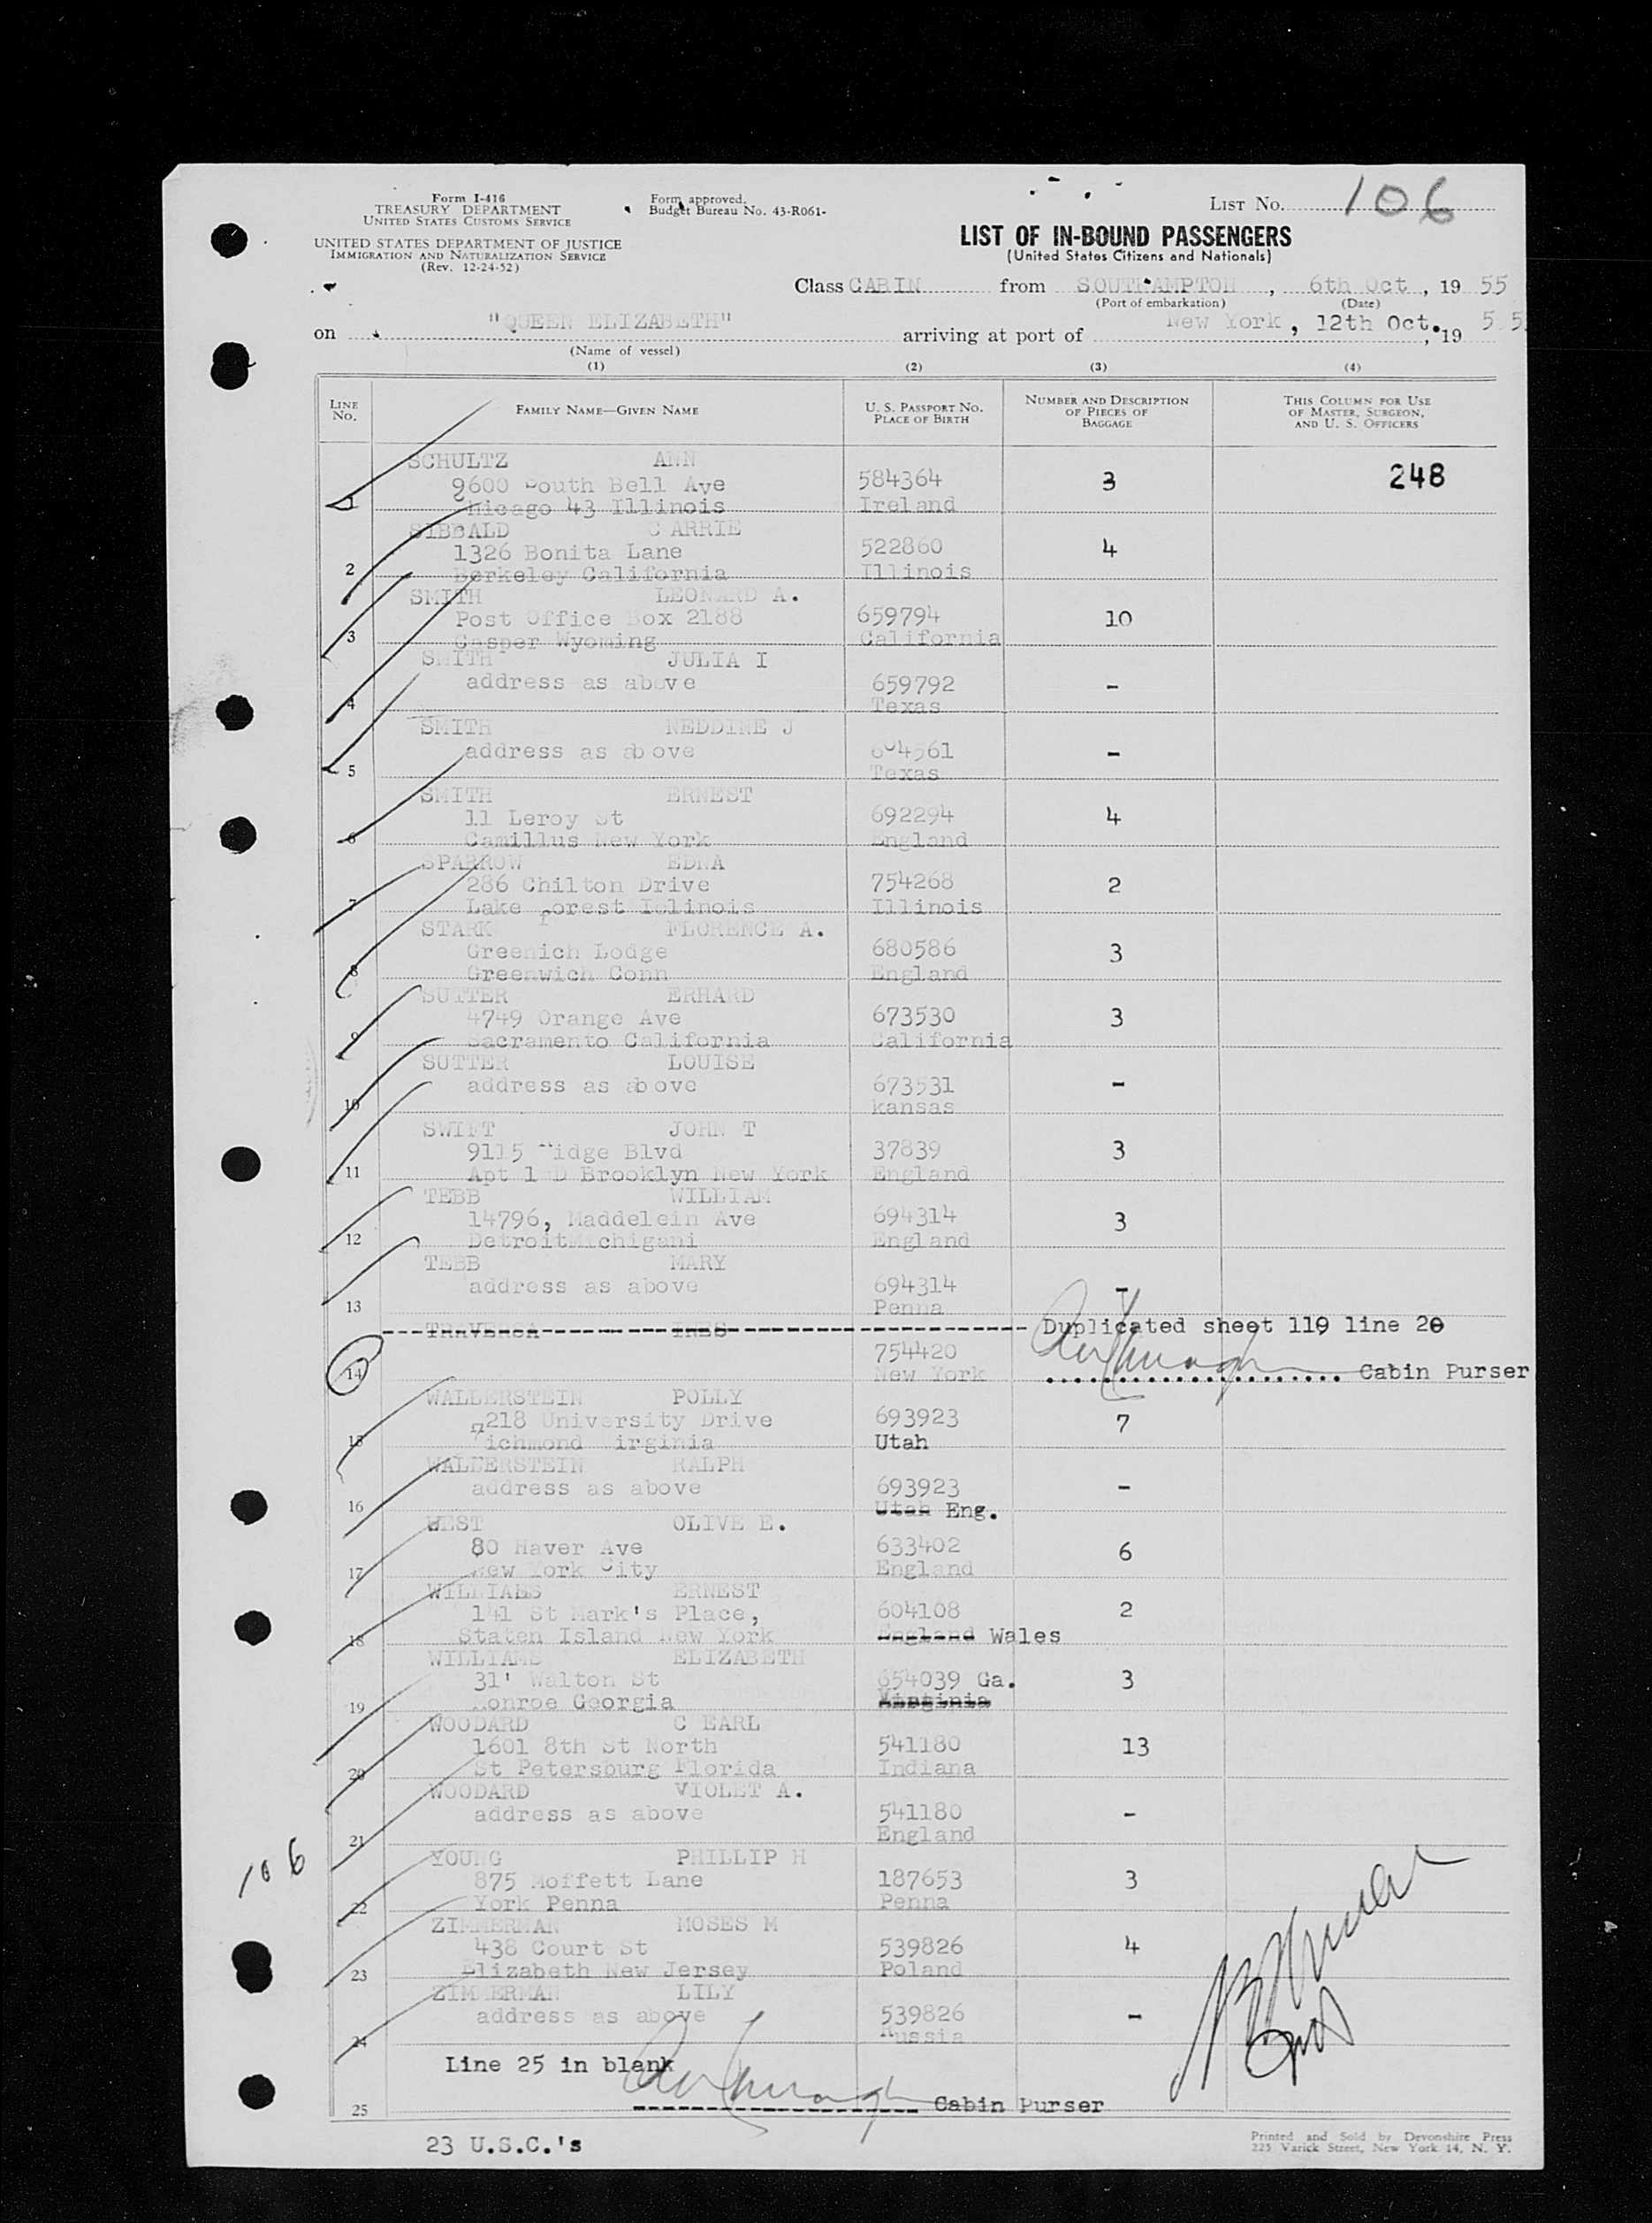 Form I-416
TREASURY DEPARTMENT
UNITED STATES CUSTOMS SERVICE
UNITED STATES DEPARTMENT OF JUSTICE
IMMIGRATION AND NATURALIZATION SERVICE
(Rev. 12-24-52)
Form approved.
Budget Bureau No. 43-R061-
LIST No. 106
LIST OF IN-BOUND PASSENGERS
(United States Citizens and Nationals)
Class CABIN from SOUTHAMPTON, 6th Oct, 19 55
(Port of embarkation) (Date)
on "QUEEN ELIZABETH" arriving at port of New York, 12th Oct., 19 55
(Name of vessel)
(1) (2) (3) (4)
LINE No. FAMILY NAME—GIVEN NAME U. S. PASSPORT NO. PLACE OF BIRTH NUMBER AND DESCRIPTION OF PIECES OF BAGGAGE THIS COLUMN FOR USE OF MASTER, SURGEON, AND U. S. OFFICERS
SCHULTZ ANN
9600 South Bell Ave 584364 3 248
1 Chicago 43 Illinois Ireland
SIBBALD CARRIE
1326 Bonita Lane 522860 4
2 Berkeley California Illinois
SMITH LEONARD A.
Post Office Box 2188 659794 10
3 Casper Wyoming California
SMITH JULIA I
address as above 659792 -
4 Texas
SMITH NEDDINE J
address as above 604561 -
5 Texas
SMITH ERNEST
11 Leroy St 692294 4
6 Camillus New York England
SPARROW EDNA
286 Chilton Drive 754268 2
7 Lake Forest Iclinois Illinois
STARK FLORENCE A.
Greenich Lodge 680586 3
8 Greenwich Conn England
SUTTER ERHARD
4749 Orange Ave 673530 3
9 Sacramento California California
SUTTER LOUISE
address as above 673531 -
10 kansas
SWIFT JOHN T
9115 Ridge Blvd 37839 3
11 Apt 1 D Brooklyn New York England
TEBB WILLIAM
14796, Maddelein Ave 694314 3
12 DetroitMichigani England
TEBB MARY
address as above 694314 -
13 Penna
TRAVERSA INES Duplicated sheet 119 line 20
754420
14 New York Cabin Purser
WALLERSTEIN POLLY
218 University Drive 693923 7
15 Richmond Virginia Utah
WALLERSTEIN RALPH
address as above 693923 -
16 Utah Eng.
WEST OLIVE E.
80 Haver Ave 633402 6
17 New York City England
WILLIAMS ERNEST
141 St Mark's Place, 604108 2
18 Staten Island New York England Wales
WILLIAMS ELIZABETH
31' Walton St 654039 Ga. 3
19 Monroe Georgia Virginia
WOODARD C EARL
1601 8th St North 541180 13
20 St Petersburg Florida Indiana
WOODARD VIOLET A.
address as above 541180 -
21 England
YOUNG PHILLIP H
875 Moffett Lane 187653 3
22 York Penna Penna
ZIMMERMAN MOSES M
438 Court St 539826 4
23 Elizabeth New Jersey Poland
ZIMMERMAN LILY
address as above 539826 -
24 Russia
Line 25 in blank
25 Cabin Purser
106
23 U.S.C.'s
Printed and Sold by Devonshire Press
225 Varick Street, New York 14, N. Y.